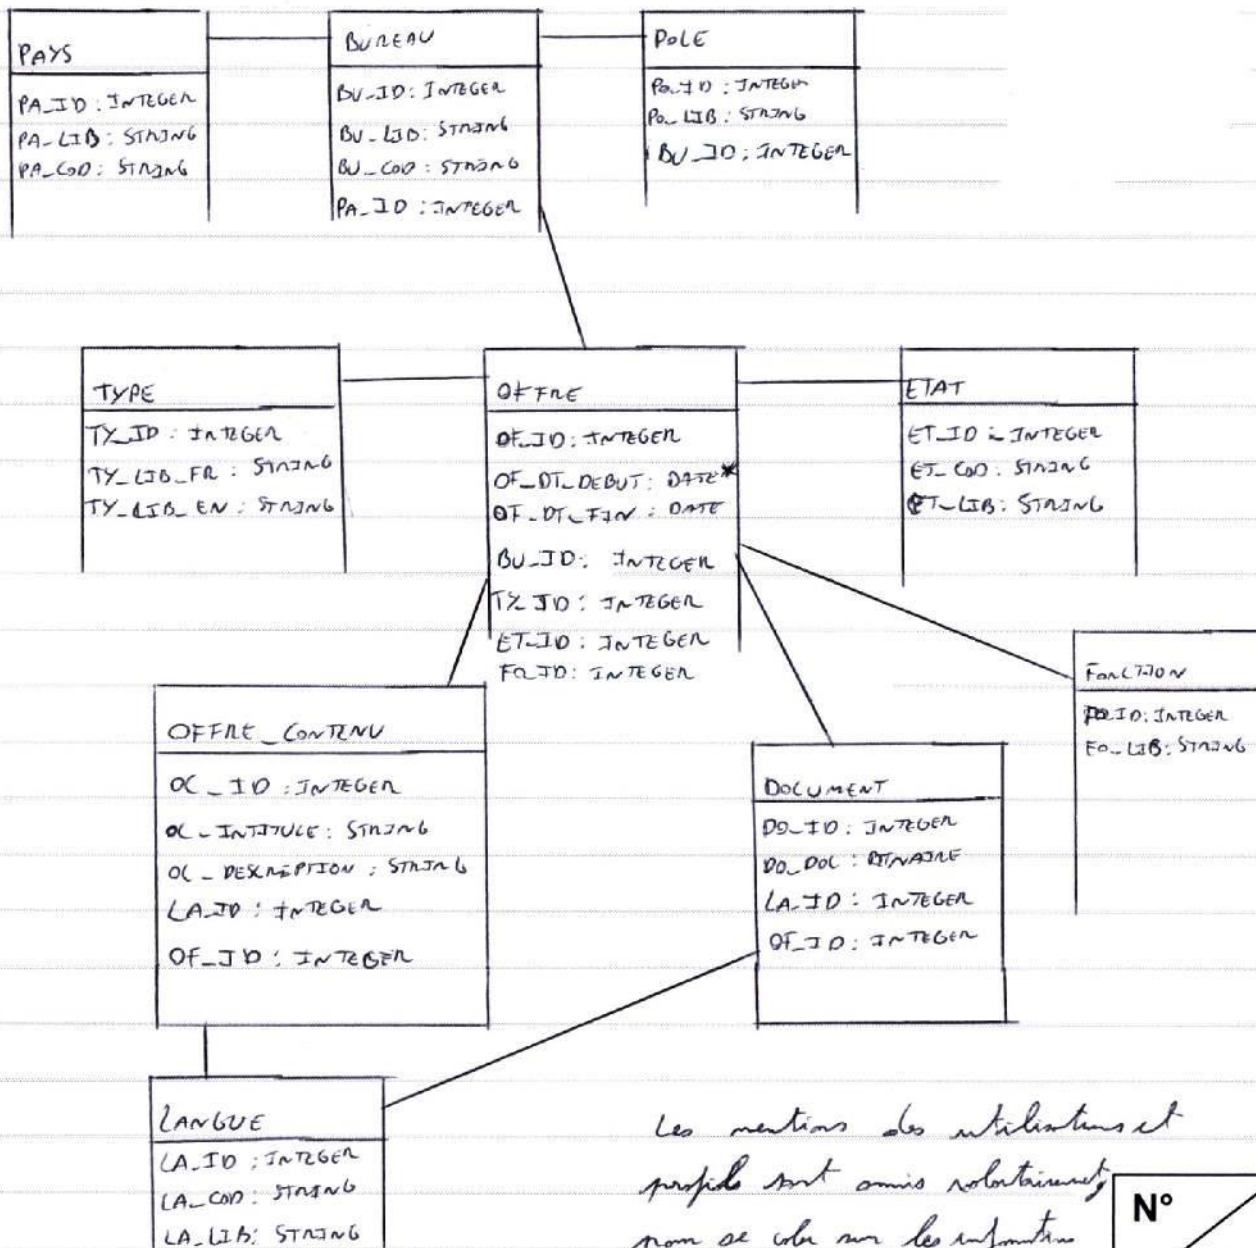 PAYS
PA_ID : INTEGER
PA_LIB : STRING
PA_COD : STRING
BUREAU
BU_ID : INTEGER
BU_LIB : STRING
BU_COD : STRING
PA_ID : INTEGER
POLE
PO_ID : INTEGER
PO_LIB : STRING
BU_ID : INTEGER
TYPE
TY_ID : INTEGER
TY_LIB_FR : STRING
TY_LIB_EN : STRING
OFFRE
OF_ID : INTEGER
OF_DT_DEBUT : DATE*
OF_DT_FIN : DATE
BU_ID : INTEGER
TY_ID : INTEGER
ET_ID : INTEGER
FO_ID : INTEGER
ETAT
ET_ID : INTEGER
ET_COD : STRING
ET_LIB : STRING
FONCTION
FO_ID : INTEGER
FO_LIB : STRING
OFFRE_CONTENU
OC_ID : INTEGER
OC_INTITULE : STRING
OC_DESCRIPTION : STRING
LA_ID : INTEGER
OF_ID : INTEGER
DOCUMENT
DO_ID : INTEGER
DO_DOC : BINAIRE
LA_ID : INTEGER
OF_ID : INTEGER
LANGUE
LA_ID : INTEGER
LA_COD : STRING
LA_LIB : STRING
Les mentions des utilisateurs et
profils sont omis volontairement,
se sur les
N°